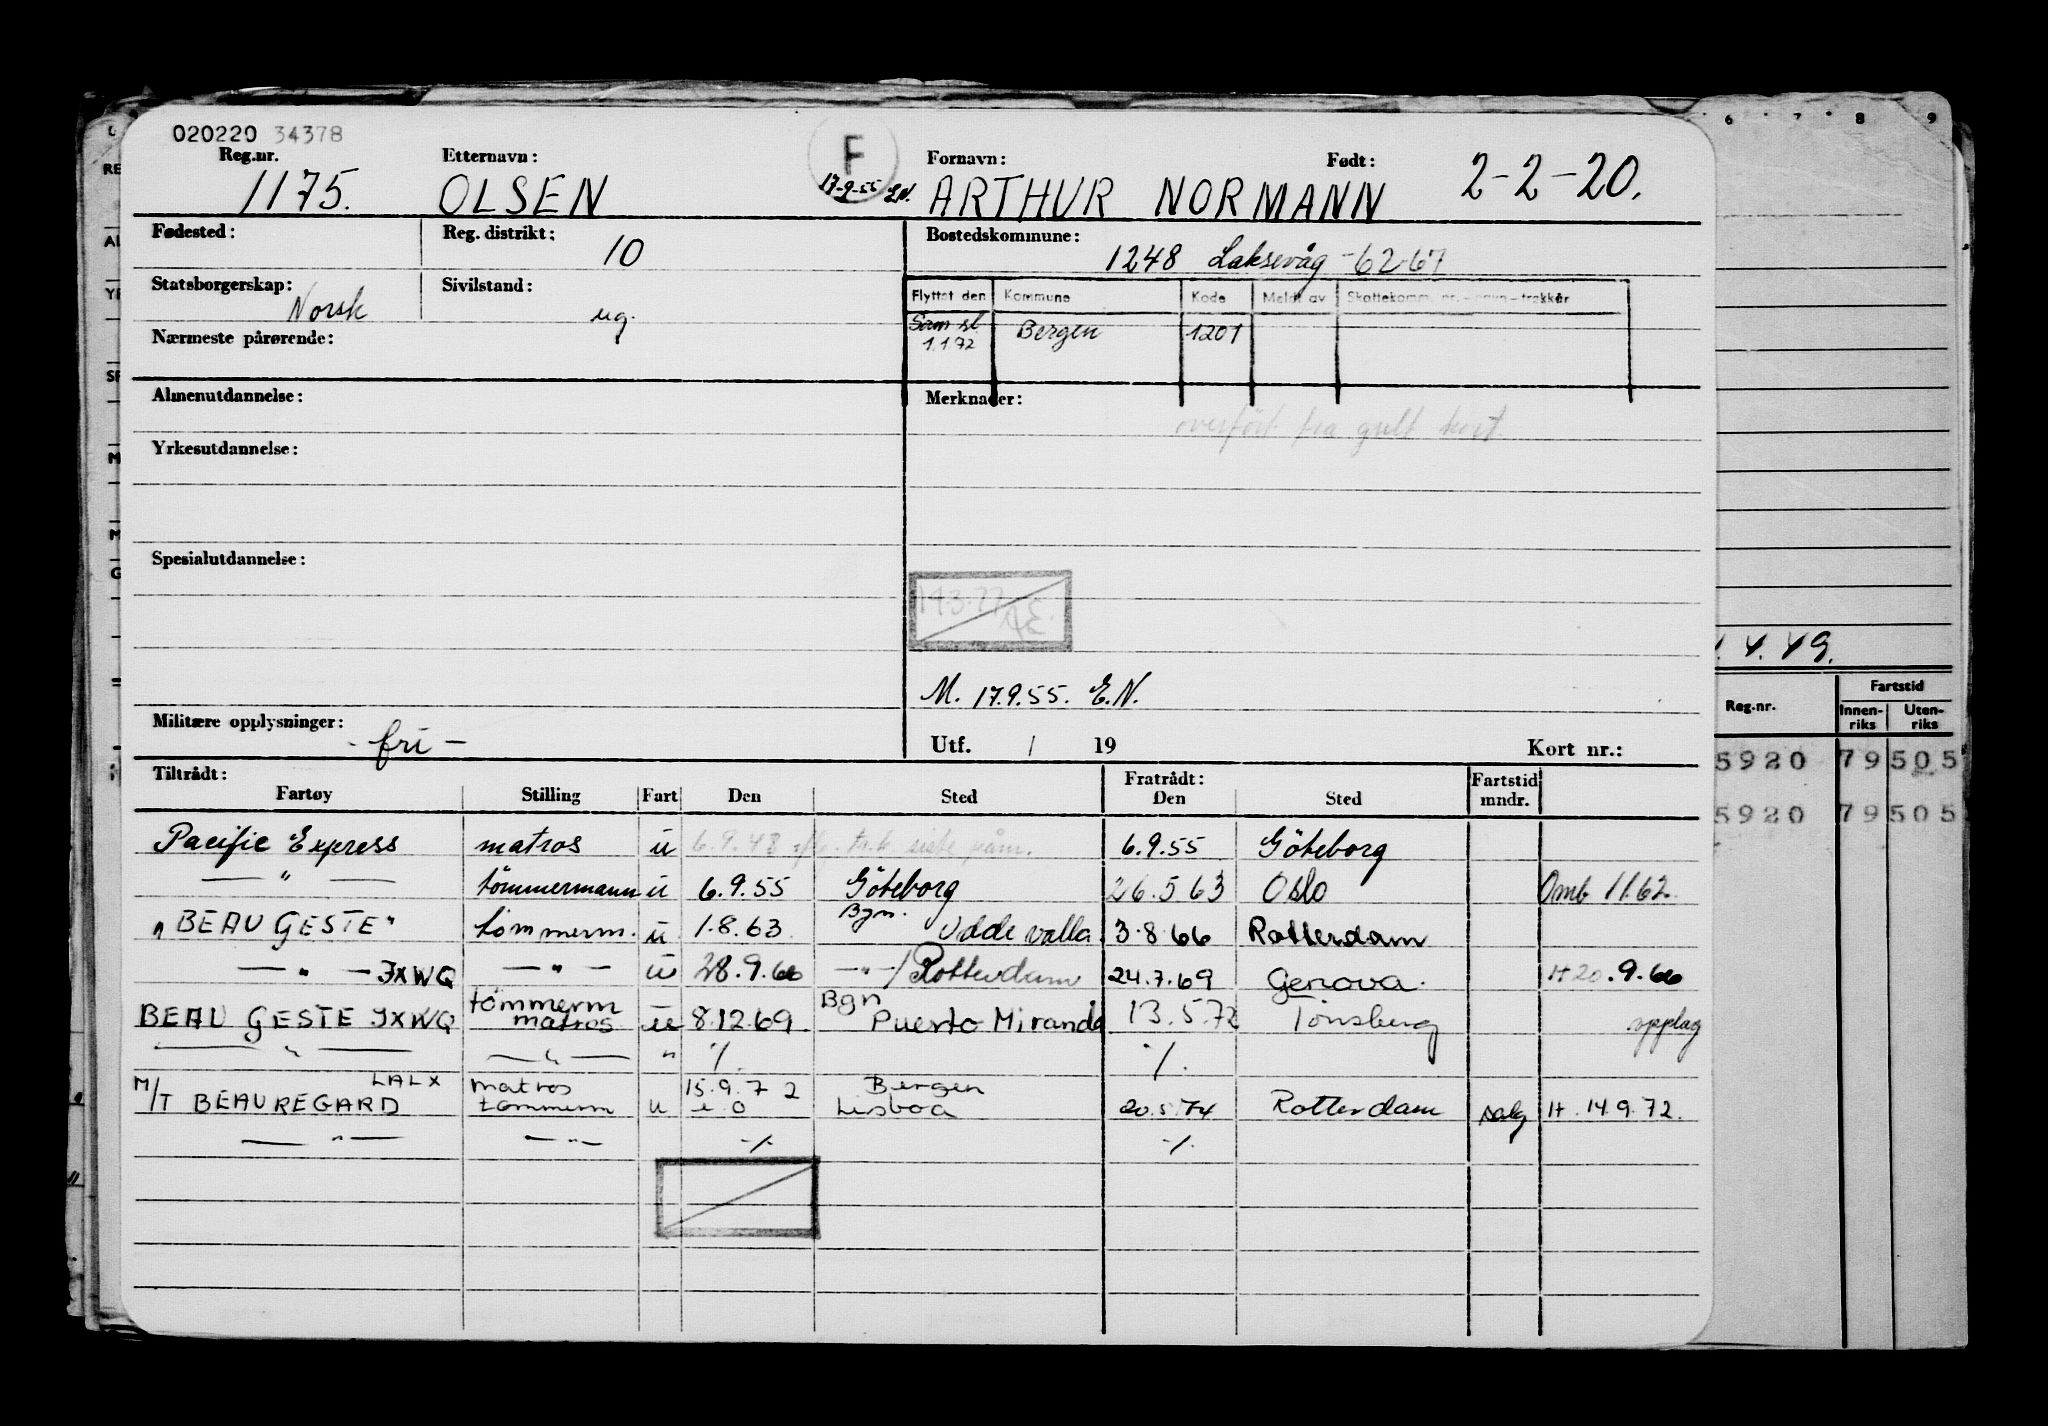 020220 34378
Reg.nr. Etternavn: F Fornavn: Født:
1175. OLSEN 17-9-55 E.N. ARTHUR NORMANN 2-2-20.
Fødested: Reg. distrikt: 10 Bostedskommune: 1248 Laksevåg -62-67
Statsborgerskap: Norsk Sivilstand: ug.
Flyttet den Kommune Kode Meldt av Skattekomm. nr. - navn - trekkår
Nærmeste pårørende:
Sam sl. 1.1.72 Bergen 1201
Almenutdannelse: Merknader:
overført fra gult kort.
Yrkesutdannelse:
Spesialutdannelse:
M. 17.9.55. E.N.
Militære opplysninger: - fri -
Utf. / 19 Kort nr.:
Tiltrådt: Fratrådt: Fartstid
Fartøy Stilling Fart Den Sted Den Sted mndr.
Pacific Express matros u 6.9.48 6.9.55 Göteborg
— " — tömmermann u 6.9.55 Göteborg 26.5.63 Oslo Omb 11.62.
"BEAU GESTE" tömmerm. u 1.8.63 Bgn. Uddevalla 3.8.66 Rotterdam
— " — JXWQ — " — u 28.9.66 — " —/Rotterdam 24.7.69 Genova. H 20.9.66
BEAU GESTE JXWQ tömmerm matros u 8.12.69 Bgn Puerto Miranda 13.5.72 Tönsberg opplag
— " — — " — " ·/. ·/.
M/T BEAUREGARD LALX matros tömmerm u 15.9.72 Bergen Lisboa 20.5.74 Rotterdam salg H. 14.9.72.
— " — — " — ·/. ·/.
6 7 8 9
4.49.
Reg.nr. Fartstid
Innenriks Utenriks
5920 79 505
5920 79 505